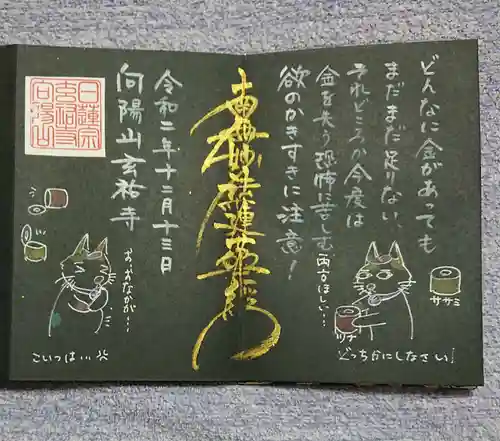 どんなに金があっても
まだまだ足りない、
それどころか今度は
金を失う恐怖に苦しむ
欲のかきすぎに注意！
両方ほしい…
ササミ
ツナ
どっちかにしなさい！
南無妙法蓮華経
令和二年十二月十三日
向陽山玄祐寺
日蓮宗
玄祐寺
向陽山
おおなかが…
こいつは…